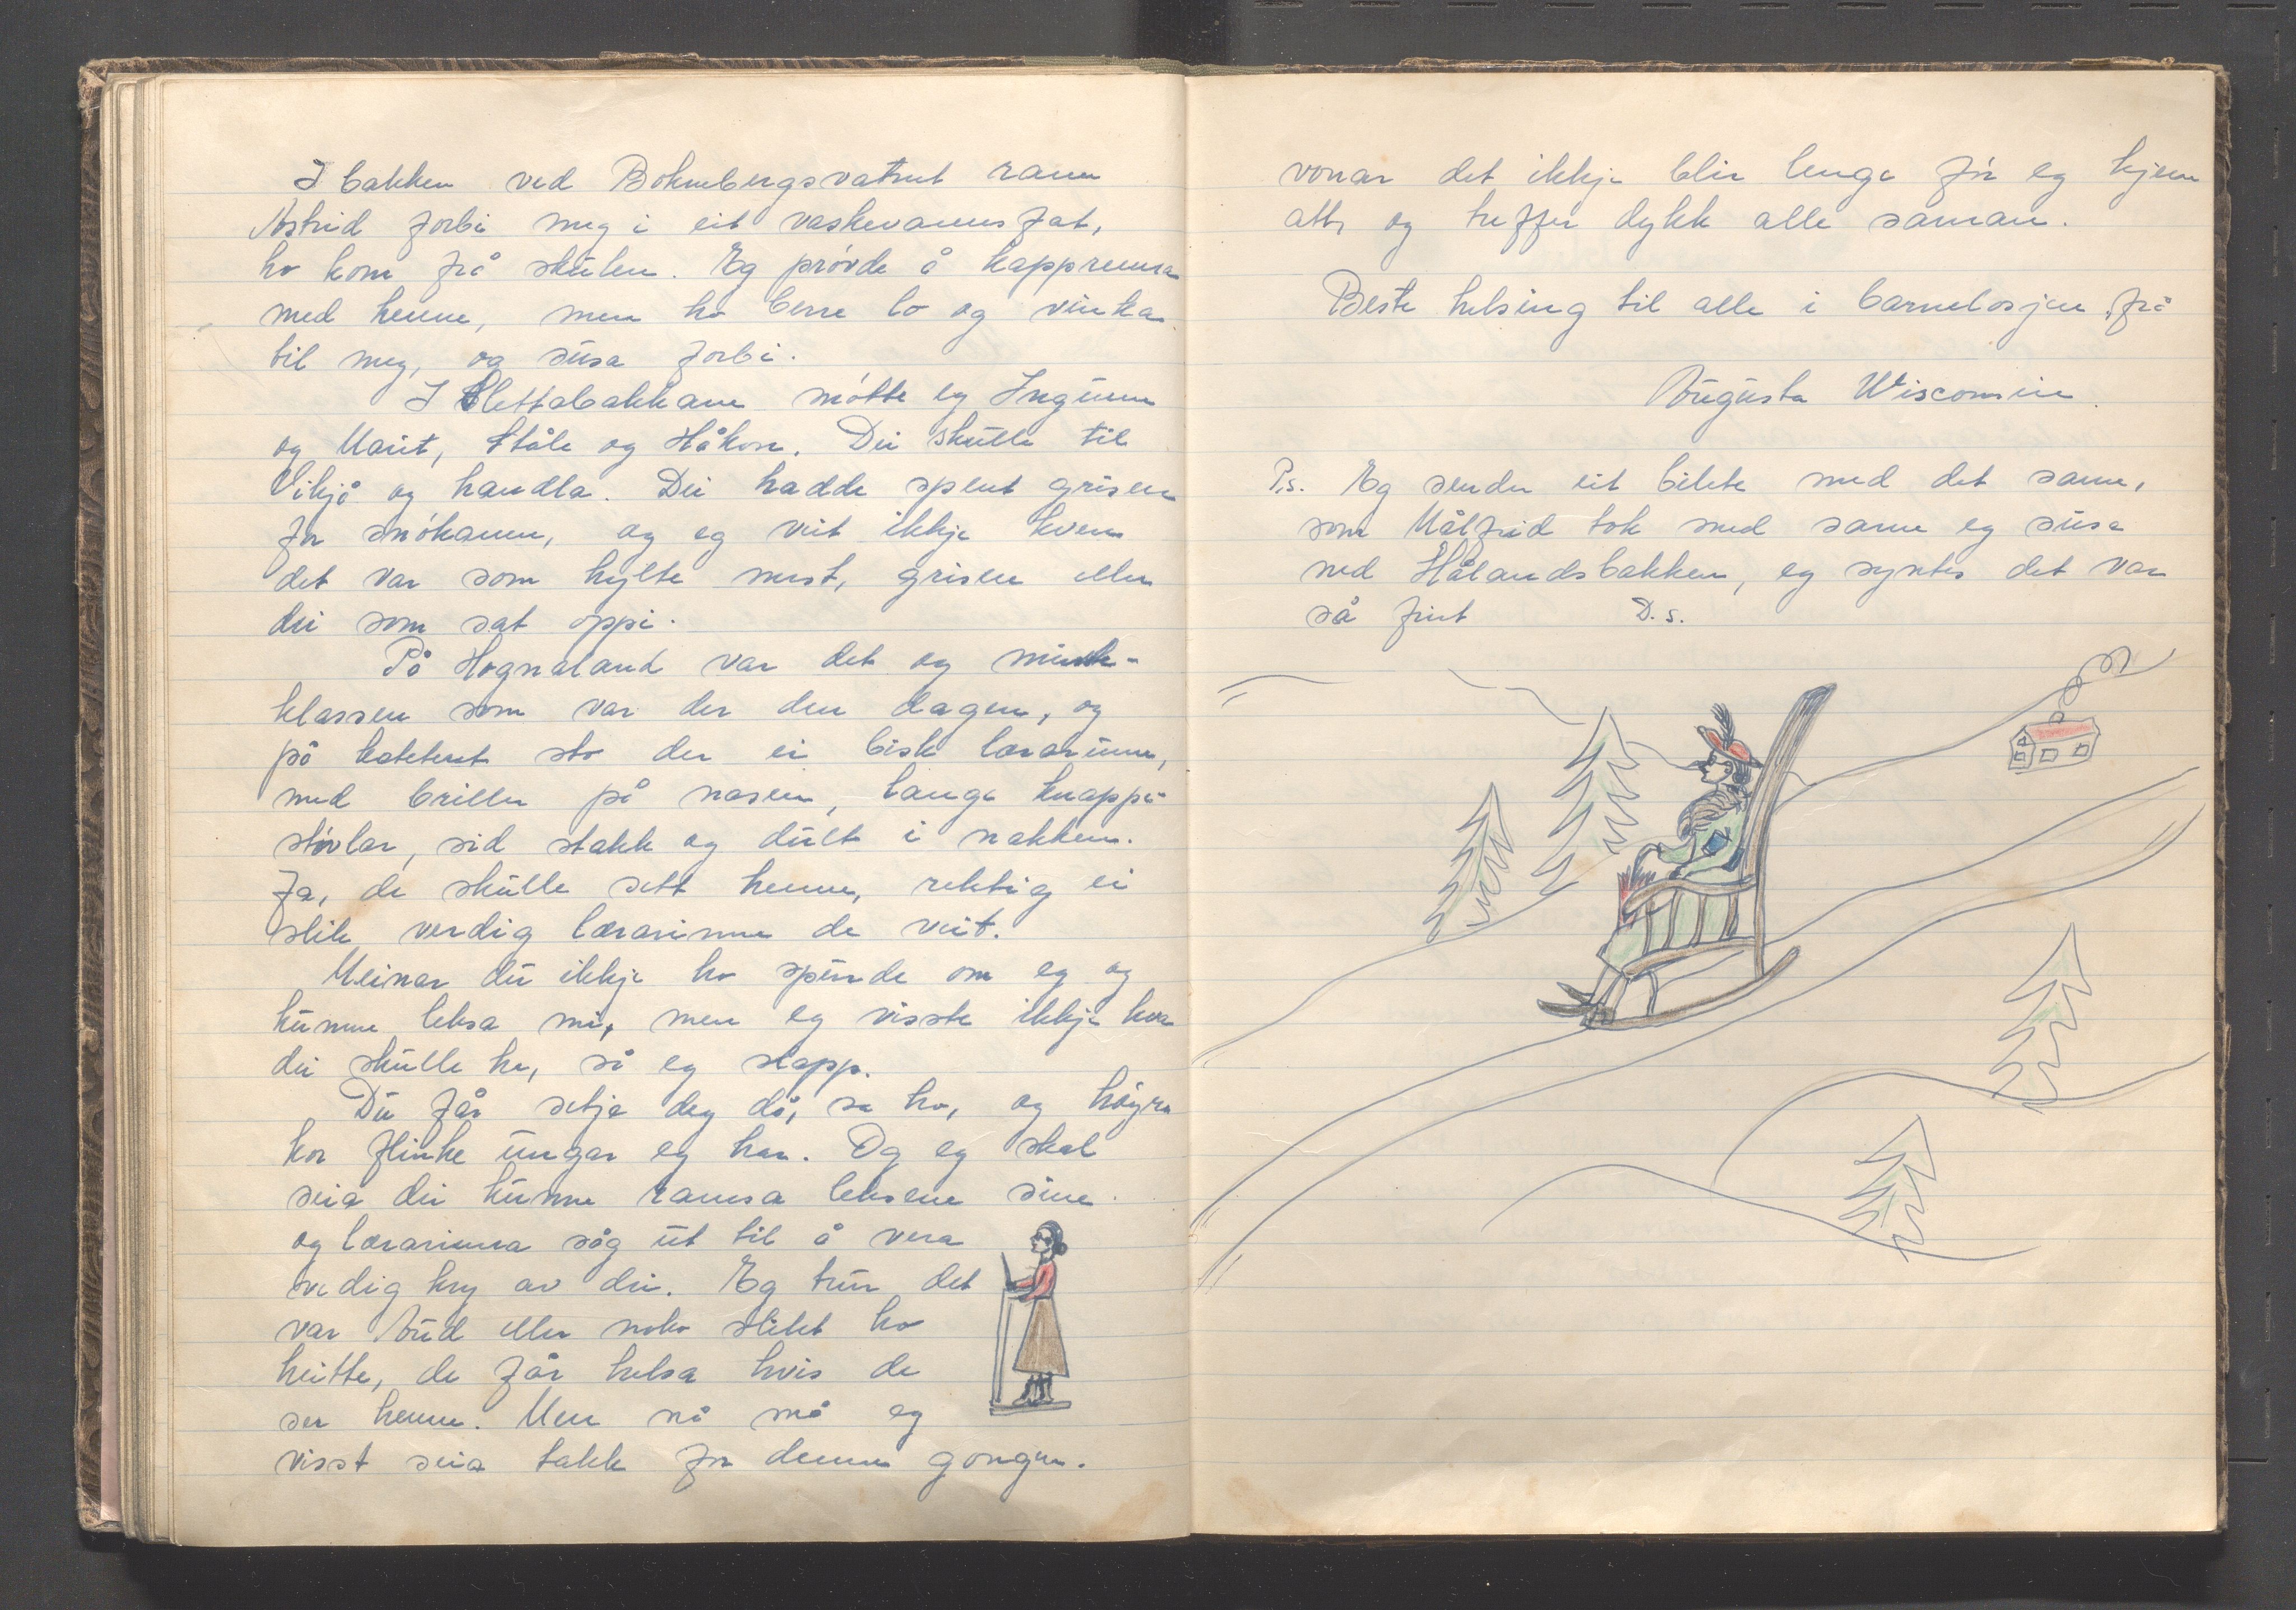 I bakken ved Boknbergsvatnet rann
Astrid forbi meg i eit vaskevannsfat,
ho kom frå skulen. Eg prøvde å kapprenna
med henne, men ho berre lo og vinka
til meg, og susa forbi.
I Slettabakkane møtte eg Ingunn
og Marit, Ståle og Håkon. Dei skulle til
Vikjå og handla. Dei hadde spent grisen
for snøkanen, og eg veit ikkje kven
det var som hylte mest, grisen eller
dei som sat oppi.
På Hognaland var det og minste-
klassen som var der den dagen, og
på kateteret sto der ei bisk lærarinne,
med briller på nasen, lange knappe-
støvlar, sid stakk og dult i nakken.
Ja, de skulle sett henne, rektig ei
slik verdig lærarinne de veit.
Meinar du ikkje ho spurde om eg og
kunne leksa mi, men eg visste ikkje kva
dei skulle ha, så eg slapp.
Du får setje deg då, sa ho, og høyra
kor flinke ungar eg har. Og eg skal
seia dei kunne ramsa leksene sine
og lærarinna såg ut til å vera
vedig kry av dei. Eg trur det
var Aud eller noko slikt ho
heitte, de får helsa hvis de
ser henne. Men nå må eg
visst seia takk for denne gongen.
vonar det ikkje blir lenge før eg kjem
att, og treffer dykk alle saman.
Beste helsing til alle i barnelosjen frå
Augusta Wisconsin.
P.s. Eg sender eit bilete med det same,
som Målfrid tok med same eg susa
ned Hålandsbakken, eg syntes det var
så fint D.s.